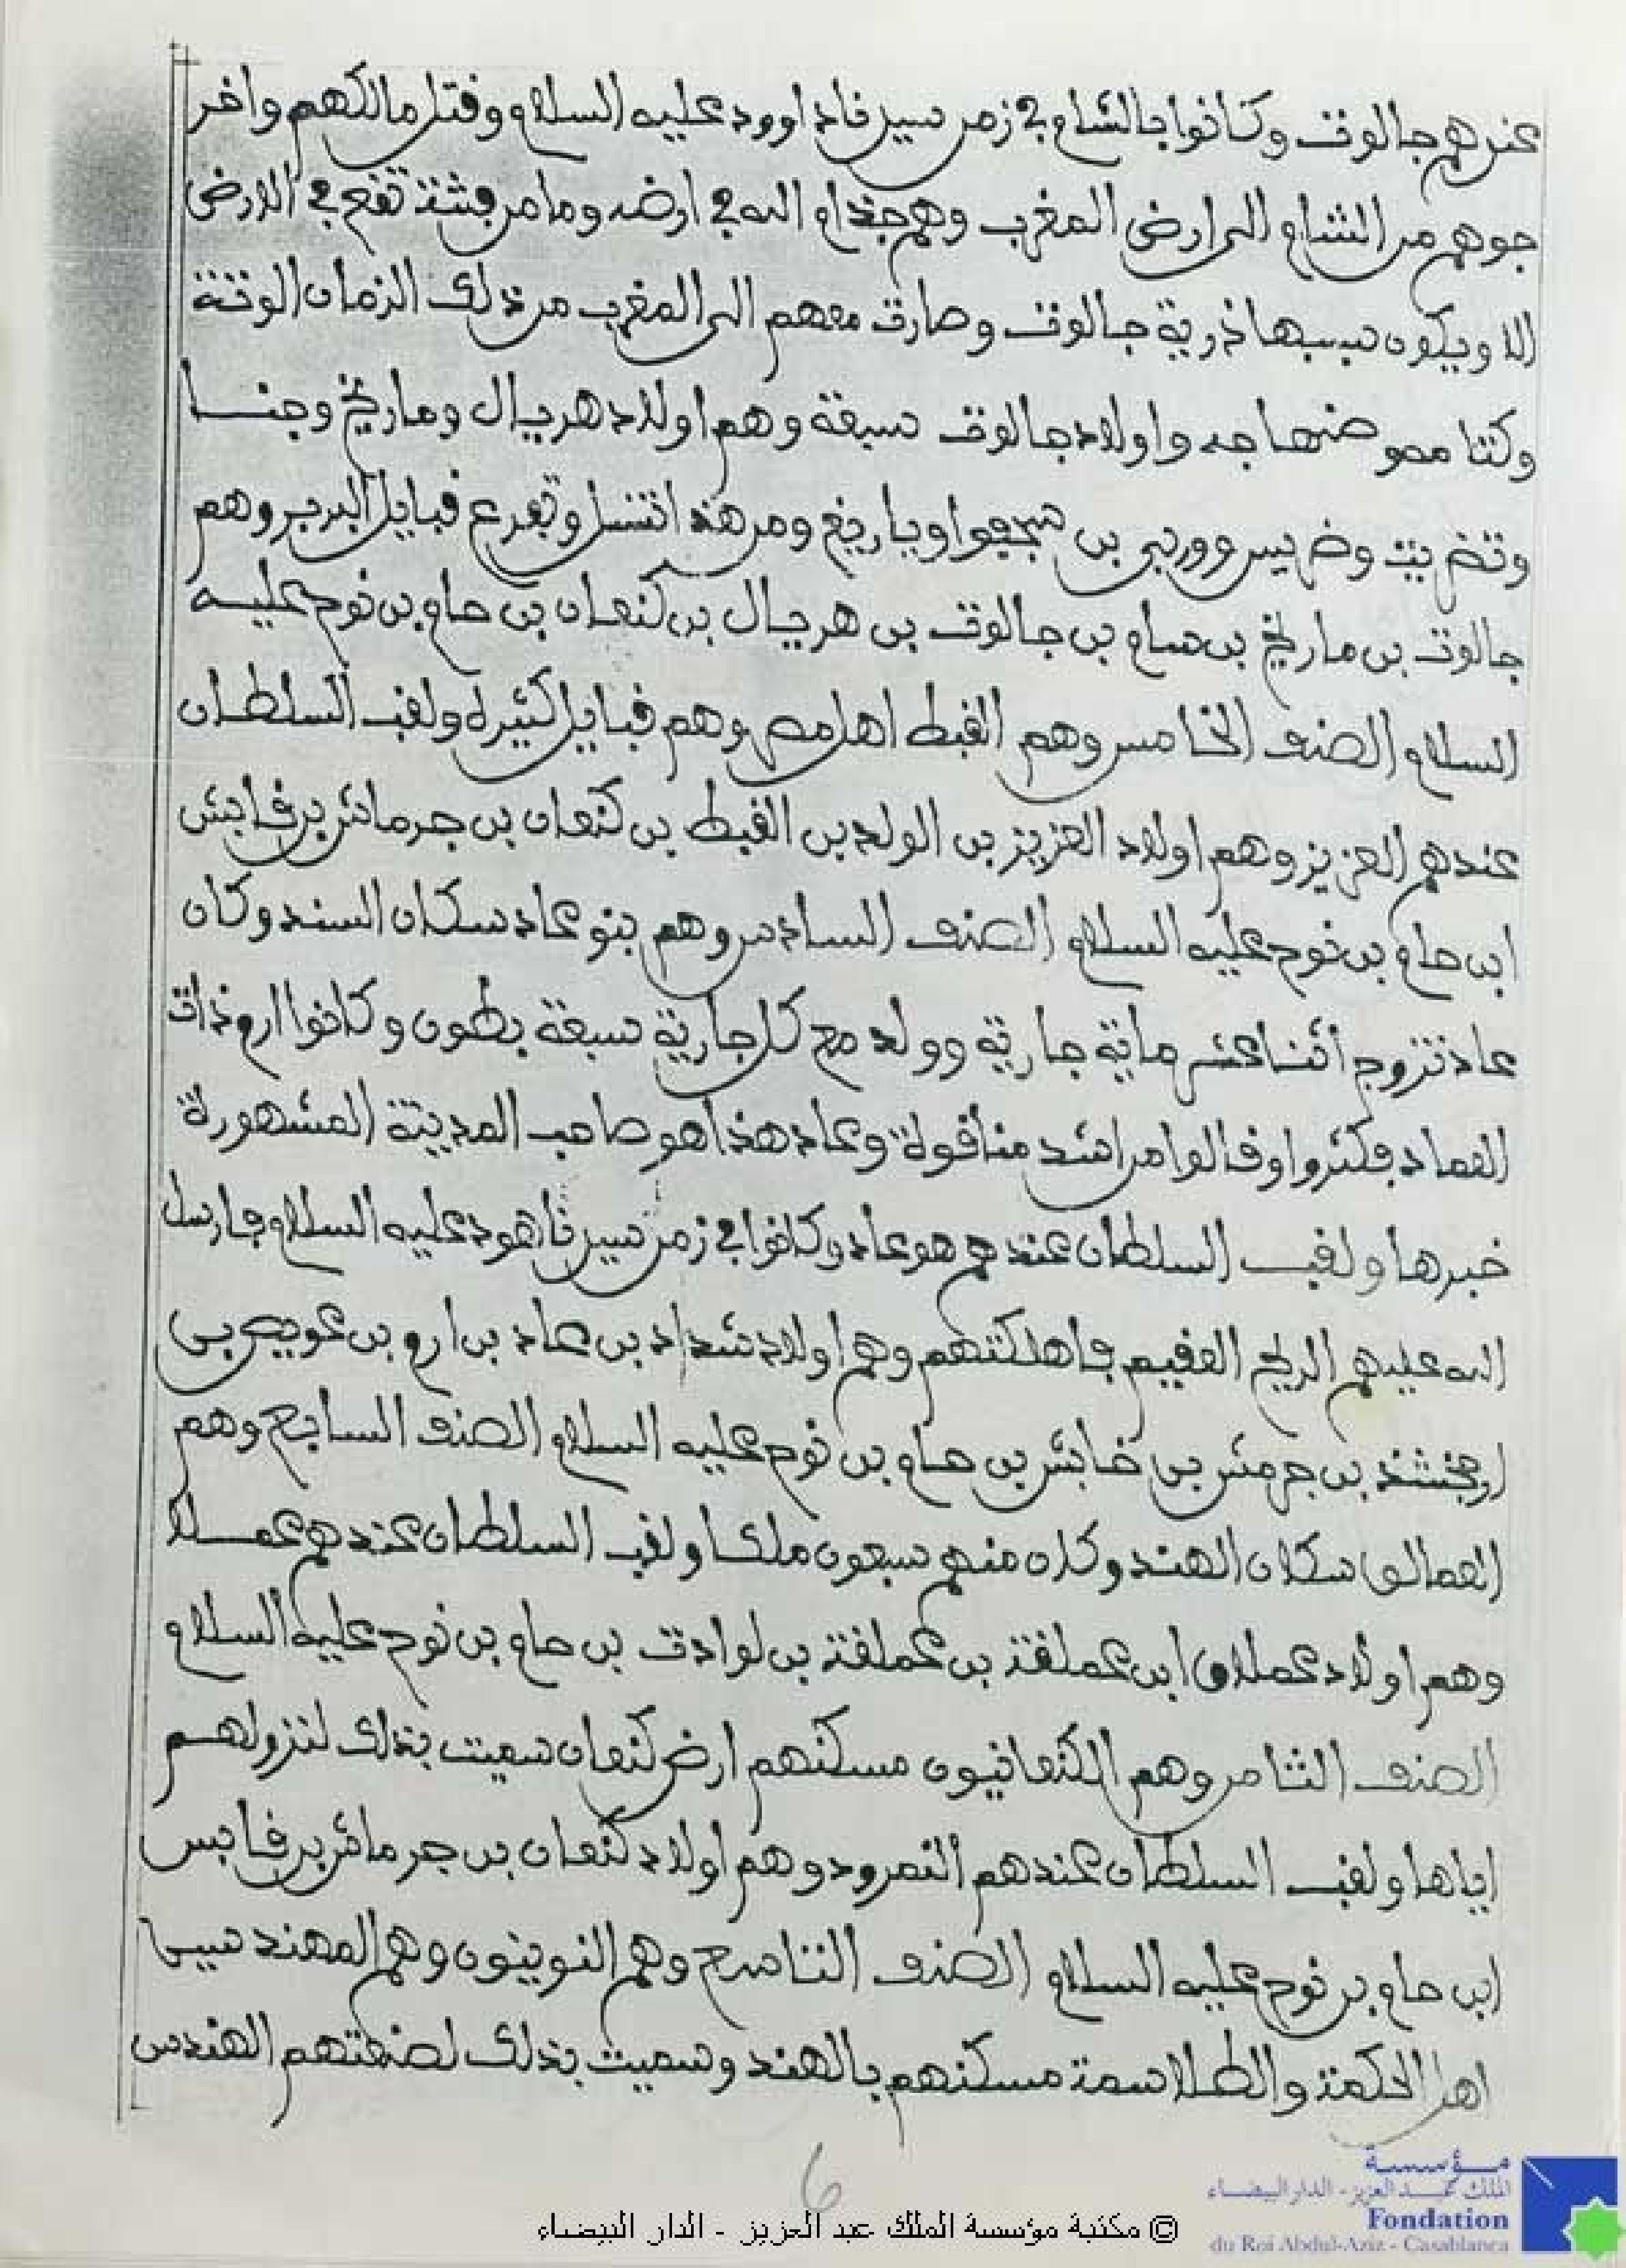 عندهم جالوت وكانوا بالشام في زمن سيدنا داوود عليه السلام وقتل مالكهم واخر
جوهم من الشام الى ارض المغرب وهم جند ام الله في ارضه وما من فتنة تقع في الارض
الا ويكون سببها ذرية جالوت وصارت معهم الى المغرب من ذلك الزمان الوتنة
وكتا صنهاجه واولاد جالوت سبعة وهم اولاد هريال وماريخ وجنسا
وتضريت وضريس وورسى بن اوياريغ ومن هذا انتسل وتفرع قبايل البربر وهم
جالوت بن ماريخ بن سام بن جالوت بن هريال بن كنعان بن حام بن نوح عليه
السلام الصنف الخامس وهم القبط اهل مصر وهم قبايل كثيرة ولقب السلطان
عندهم العزيز وهم اولاد العزيز بن الوليد بن القبط بن كنعان بن جرمانش بن قابش
ابن حام بن نوح عليه السلام الصنف السادس وهم بنو عاد سكان السند وكان
عاد تزوج اثنا عشر ماية جارية وولد مع كل جارية سبعة بطون وكانوا ارم ذات
العماد فكثروا وقالوا من اشد منا قوة وعاد هذا هو صاحب المدينة المشهورة
خبرها ولقب السلطان عندهم هو عاد وكانوا في زمن سيدنا هود عليه السلام فارسل
الله عليهم الريح العقيم فاهلكتهم وهم اولاد شداد بن عاد بن ارم بن عويص بن
ارفخشد بن جرمنش بن قابش بن حام بن نوح عليه السلام الصنف السابع وهم
العمالق سكان الهند وكان منهم سبعون ملكا ولقب السلطان عندهم عملاق
وهم اولاد عملاق ابن عملقة بن عملقة بن لوادت بن حام بن نوح عليه السلام
الصنف الثامن وهم الكنعانيون مسكنهم ارض كنعان سميت بذلك لنزولهم
اياها ولقب السلطان عندهم النمرود وهم اولاد كنعان بن جرمانش بن قابس
ابن حام بن نوح عليه السلام الصنف التاسع وهم النوينون وهم المهندسين
اهل الحكمة والطلاسمة مسكنهم بالهند وسميت بذلك لصنعتهم الهندس
6
© مكتبة مؤسسة الملك عبد العزيز - الدار البيضاء
مؤسسة
الملك عبد العزيز - الدار البيضاء
Fondation
du Roi Abdul-Aziz - Casablanca